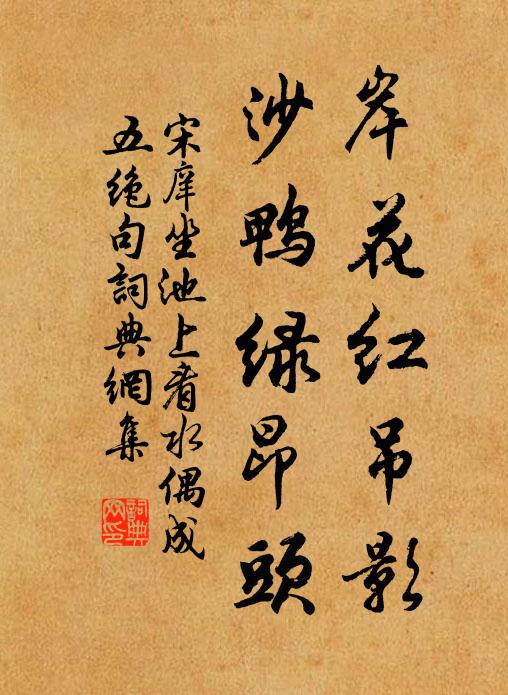 岸花红吊影
沙鸭绿昂头
宋庠坐池上看水偶成
五绝句詞典網集
詞典
网印